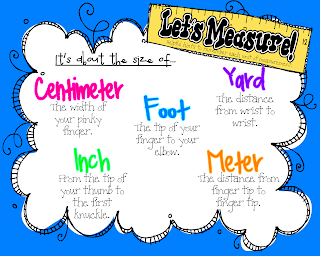 Let's Measure!
It's about the size of
Centimeter
The width of
your pinky
finger.
Foot
The tip of your
finger to your
elbow.
Yard
The distance
from wrist to
wrist.
Inch
From the tip of
your thumb to
the first
knuckle.
Meter
The distance from
finger tip to
finger tip.